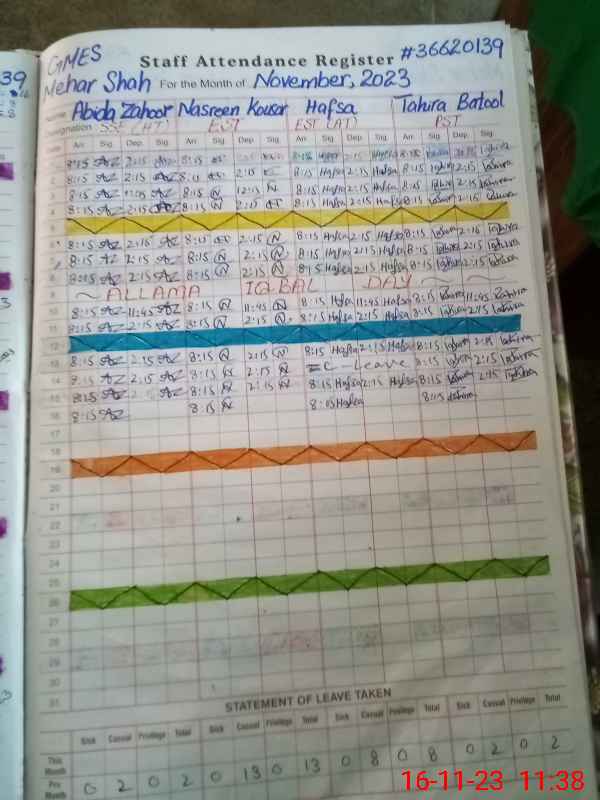 GMES Staff Attendance Register #36620139
Mehar Shah For the Month of November, 2023
Name Abida Zahoor Nasreen Kousar Hafsa Tahira Batool
Designation SSE (HT) EST EST (AT) PST
Arr. Sig. Dep. Sig. Arr. Sig. Dep. Sig. Arr. Sig. Dep. Sig. Arr. Sig. Dep. Sig.
8:15 AZ 2:15 8:15
8:15 AZ 2:15 AZ 2:15 8:15 Hafsa 2:15 Hafsa 8:15 2:15 Tahira
8:15 AZ 8:15 N 12:15 N 8:15 Hafsa 2:15 Hafsa 8:15 2:15 Tahira
4 8:15 AZ 2:15 AZ 8:15 N 2:15 8:15 Hafsa 2:15 Hafsa 8:15 Tahira 2:15 Tahira
5
6 8:15 AZ 2:15 AZ 8:15 2:15 N 8:15 Hafsa 2:15 Hafsa 8:15 Tahira 2:15 Tahira
8:15 AZ 2:15 AZ 8:15 N 2:15 N 8:15 Hafsa 2:15 Hafsa 8:15 Tahira 2:15 Tahira
8 8:15 AZ 2:15 AZ 8:15 N 2:15 N 8:15 Hafsa 2:15 Hafsa 8:15 Tahira 2:15 Tahira
9 ~ ALLAMA IQBAL DAY ~ ~
10 8:15 AZ 11:45 AZ 8:15 N 11:45 N 8:15 Hafsa 11:45 Hafsa 8:15 Tahira 11:45 Tahira
11 8:15 AZ 2:15 AZ 8:15 N 2:15 N 8:15 Hafsa 2:15 Hafsa 8:15 Tahira 2:15 Tahira
12
13 8:15 AZ 2:15 AZ 8:15 N 2:15 N 8:15 Hafsa 2:15 Hafsa 8:15 Tahira 2:15 Tahira
14 8:15 AZ 2:15 AZ 8:15 N 2:15 N C-Leave 8:15 Tahira 2:15 Tahira
15 8:15 AZ 2:15 AZ 8:15 N 2:15 N 8:15 Hafsa 2:15 Hafsa 8:15 Tahira 2:15 Tahira
16 8:15 AZ 8:15 N 8:15 Hafsa 8:15 Tahira
17
18
19
20
21
22
23
24
25
26
27
28
29
30
31
STATEMENT OF LEAVE TAKEN
Sick Casual Privilege Total Sick Casual Privilege Total Sick Casual Privilege Total Sick Casual Privilege Total
This Month
Pre Month 0 2 0 2 0 13 0 13 0 8 0 8 0 2 0 2
16-11-23 11:38